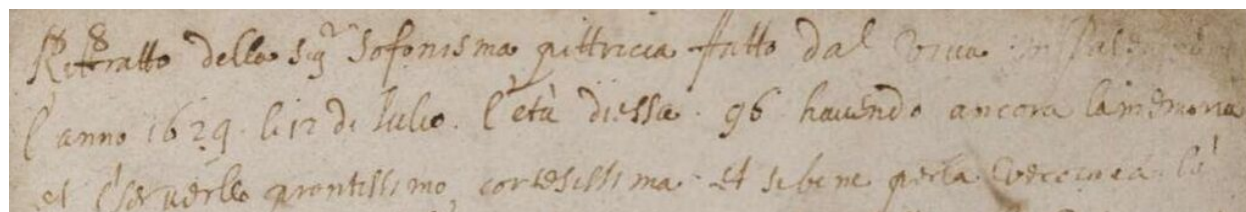 Rittratto della Sigra Sofonisma pittricia fatto dal vivo in Palermo
l'anno 1629 li 12 di Julio. l'età di essa 96 havendo ancora la memoria
et il servello prontissimo, cortesissima et sebene per la vecciaia le